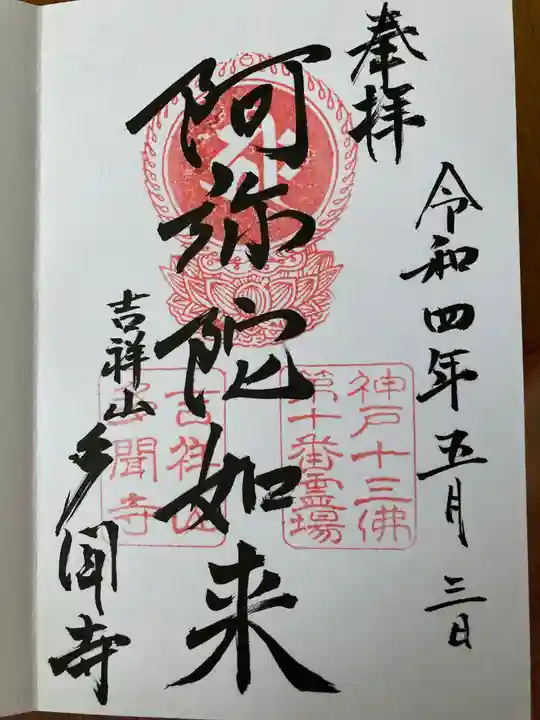 奉拝
令和四年五月三日
阿弥陀如来
神戸十三佛
第十番霊場
吉祥山
多聞寺
吉祥山
多聞寺